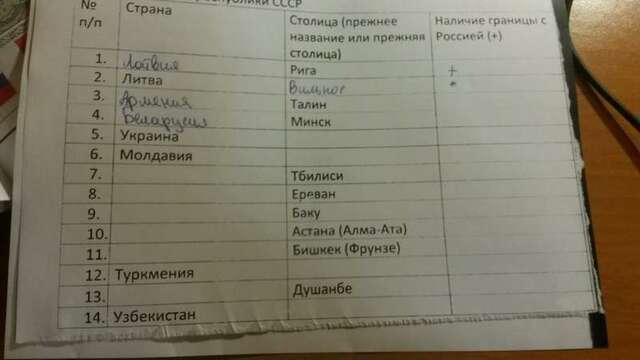 республики СССР
№ п/п Страна Столица (прежнее название или прежняя столица) Наличие границы с Россией (+)
1. Латвия Рига +
2. Литва Вильнюс
3. Армения Талин
4. Беларусия Минск
5. Украина
6. Молдавия
7. Тбилиси
8. Ереван
9. Баку
10. Астана (Алма-Ата)
11. Бишкек (Фрунзе)
12. Туркмения
13. Душанбе
14. Узбекистан